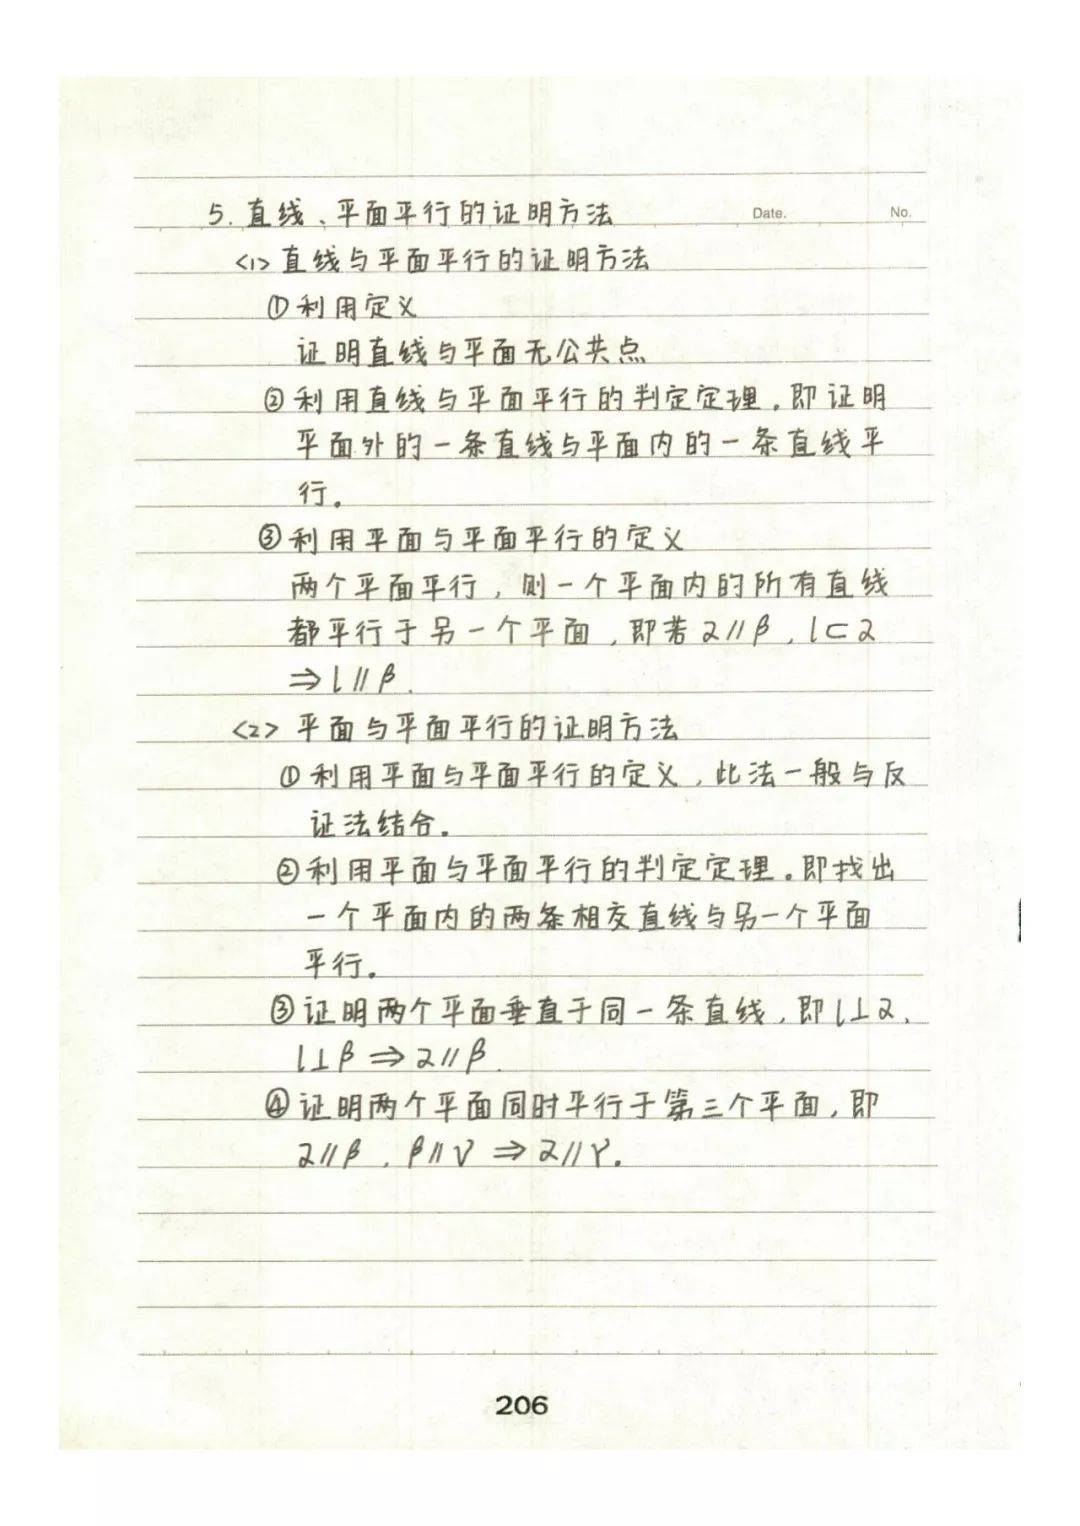 Date.
No.
5. 直线、平面平行的证明方法
<1> 直线与平面平行的证明方法
① 利用定义
证明直线与平面无公共点
② 利用直线与平面平行的判定定理。即证明
平面外的一条直线与平面内的一条直线平
行。
③ 利用平面与平面平行的定义
两个平面平行，则一个平面内的所有直线
都平行于另一个平面，即若α//β，l⊂α
⇒l//β.
<2> 平面与平面平行的证明方法
① 利用平面与平面平行的定义，此法一般与反
证法结合。
② 利用平面与平面平行的判定定理。即找出
一个平面内的两条相交直线与另一个平面
平行。
③ 证明两个平面垂直于同一条直线，即l⊥α，
l⊥β⇒α//β.
④ 证明两个平面同时平行于第三个平面，即
α//β，β//γ⇒α//γ。
206